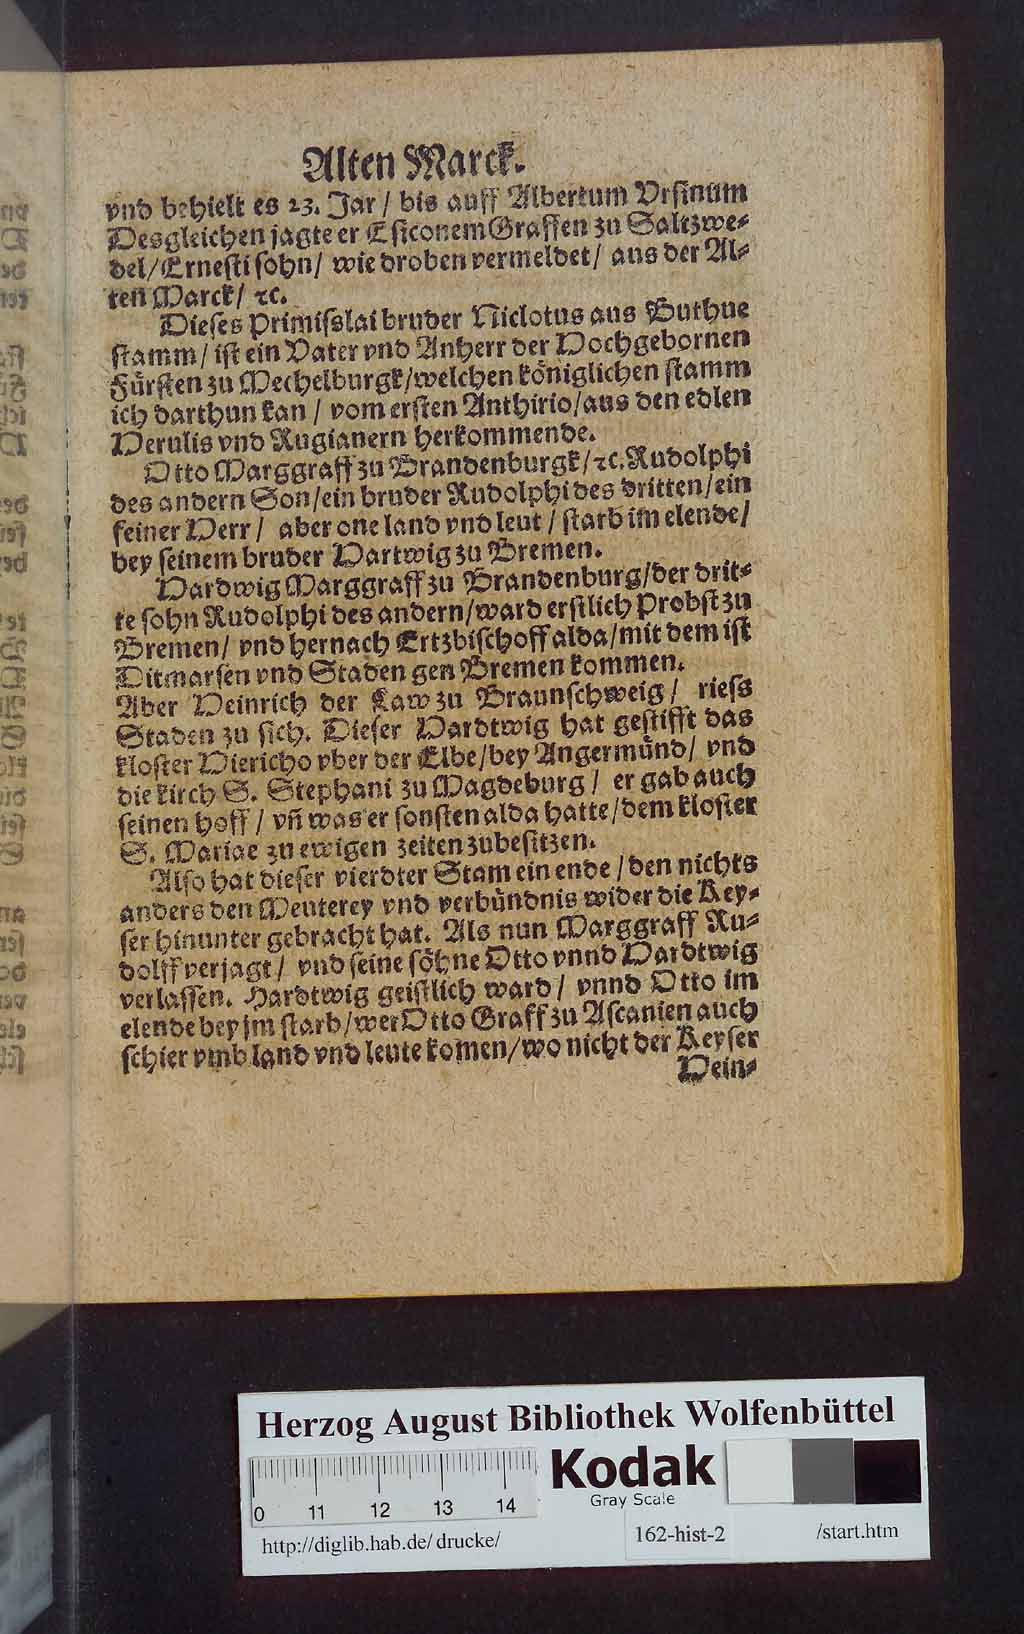 Alten Marck.
vnd behielt es 23. Jar / bis auff Albertum Vrsinum
Desgleichen jagte er Esiconem Graffen zu Saltzwe-
del / Ernesti sohn / wie droben vermeldet / aus der Al-
ten Marck / ꝛc.
Dieses Primisslai bruder Niclotus aus Buthue
stamm / ist ein Vater vnd Anherr der Hochgebornen
Fürsten zu Mechelburgk / welchen königlichen stamm
ich darthun kan / vom ersten Anthirio / aus den edlen
Herulis vnd Rugianern herkommende.
Otto Marggraff zu Brandenburgk / ꝛc. Rudolphi
des andern Son / ein bruder Rudolphi des dritten / ein
feiner Herr / aber one land vnd leut / starb im elende /
bey seinem bruder Hartwig zu Bremen.
Hardwig Marggraff zu Brandenburg / der drit-
te sohn Rudolphi des andern / ward erstlich Probst zu
Bremen / vnd hernach Ertzbischoff alda / mit dem ist
Ditmarsen vnd Staden gen Bremen kommen.
Aber Heinrich der Law zu Braunschweig / riess
Staden zu sich. Dieser Hardtwig hat gestifft das
kloster Hiericho vber der Elbe / bey Angermünd / vnd
die kirch S. Stephani zu Magdeburg / er gab auch
seinen hoff / vñ was er sonsten alda hatte / dem kloster
S. Mariae zu ewigen zeiten zubesitzen.
Also hat dieser vierdter Stam ein ende / den nichts
anders den Meuterey vnd verbündnis wider die Key-
ser hinunter gebracht hat. Als nun Marggraff Ru-
dolff verjagt / vnd seine söhne Otto vnnd Hardtwig
verlassen. Hardtwig geistlich ward / vnnd Otto im
elende bey jm starb / wer Otto Graff zu Ascanien auch
schier vmb land vnd leute komen / wo nicht der Keyser
Hein-
Herzog August Bibliothek Wolfenbüttel
Kodak
Gray Scale
0 11 12 13 14
http://diglib.hab.de/drucke/ 162-hist-2 /start.htm